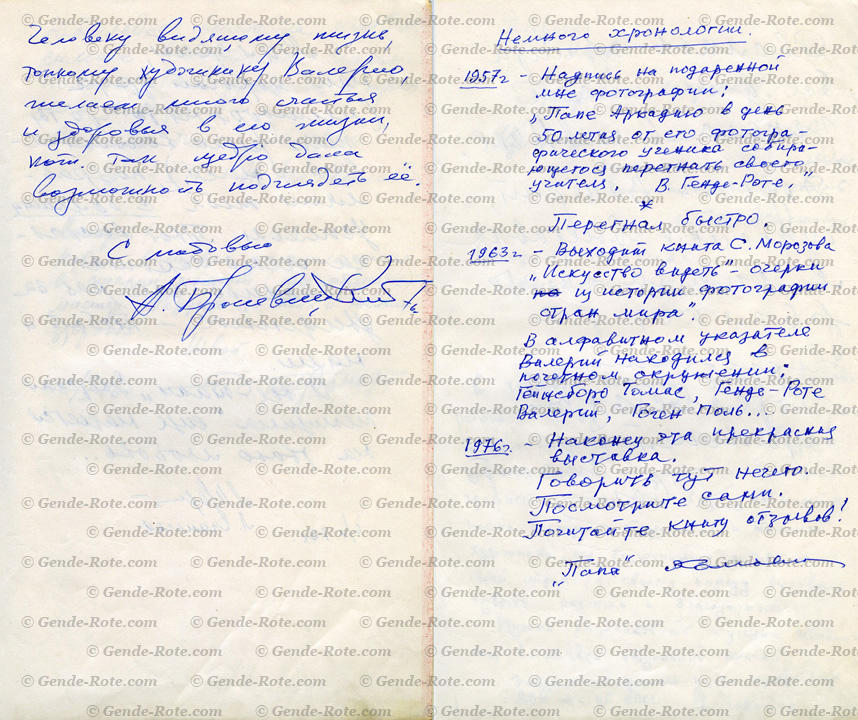 Человеку видящему жизнь,
тонкому художнику Валерию,
желаем много счастья
и здоровья в его жизни,
кот. так щедро дала
возможность подглядеть её.
С любовью
Немного хронологии.
1957г - Надпись на подаренной
мне фотографии:
„Папе Аркадию в день
50летия от его фотогра-
фического ученика собира-
ющегося перегнать своего
учителя. В. Генде-Роте."
*
Перегнал быстро.
1963г - Выходит книга С. Морозова
„Искусство видеть" - очерки
из истории фотографии
стран мира".
В алфавитном указателе
Валерий находился в
почетном окружении:
Гейнсборо Томас, Генде-Роте
Валерий, Гоген Поль...
1976г. - Наконец эта прекрасная
выставка.
Говорить тут нечего.
Посмотрите сами.
Почитайте книгу отзывов!
„Папа"
© Gende-Rote.com